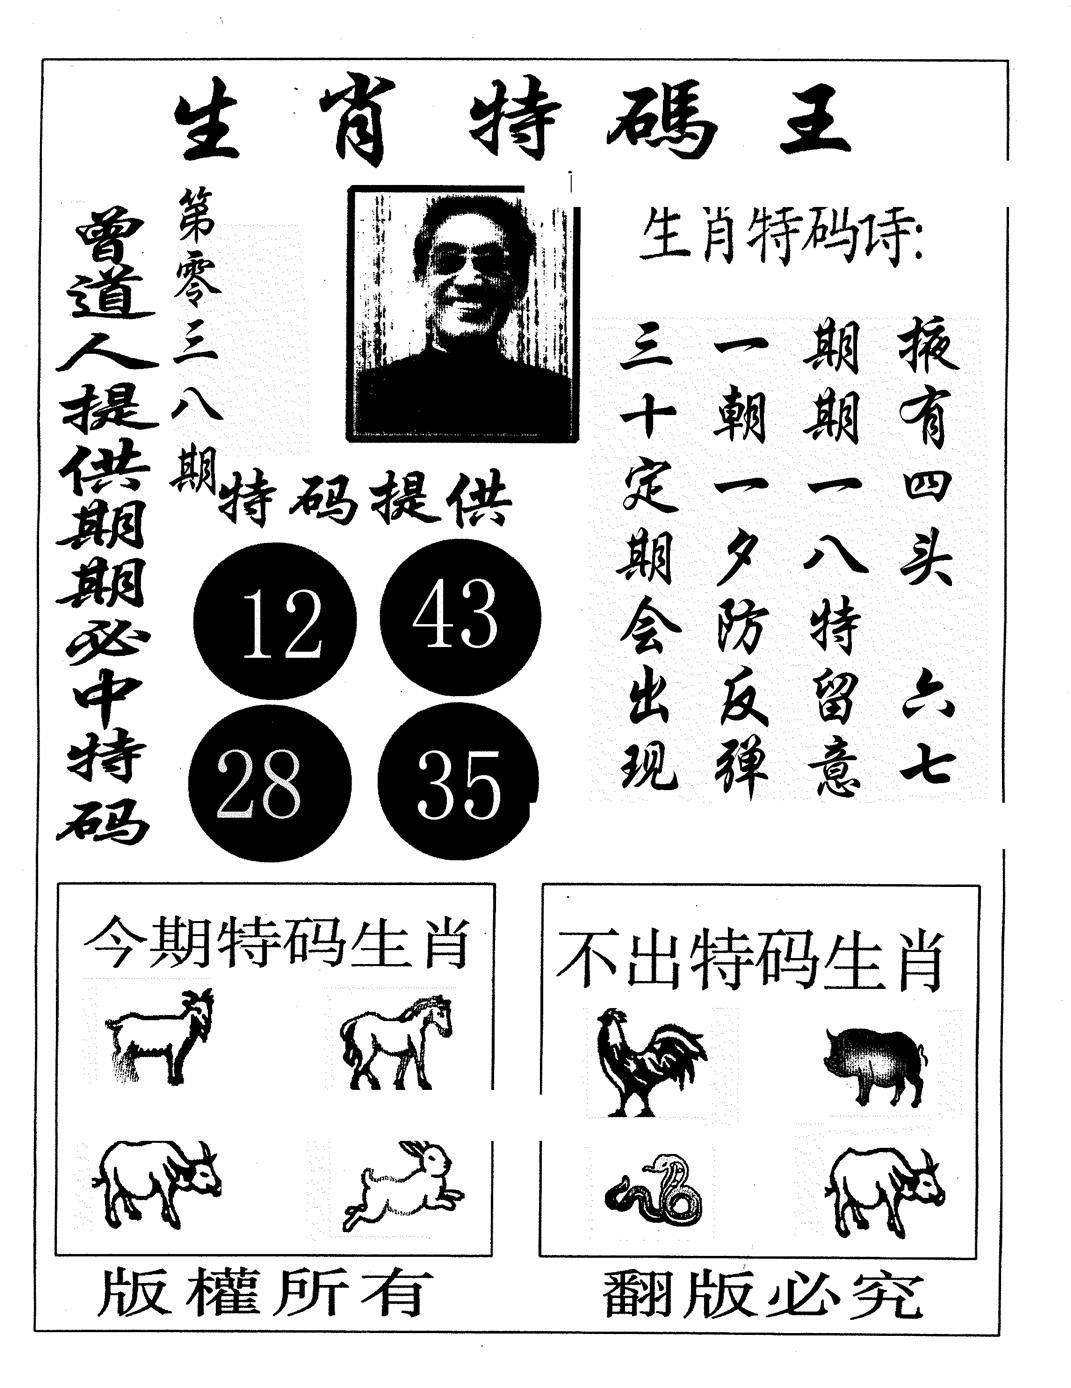 生肖特碼王
曾道人提供期期必中特码
第零三八期
特码提供
12 43
28 35
生肖特码诗:
掖有四头 六七
期期一八特留意
一朝一夕防反弹
三十定期会出现
今期特码生肖
不出特码生肖
版權所有
翻版必究